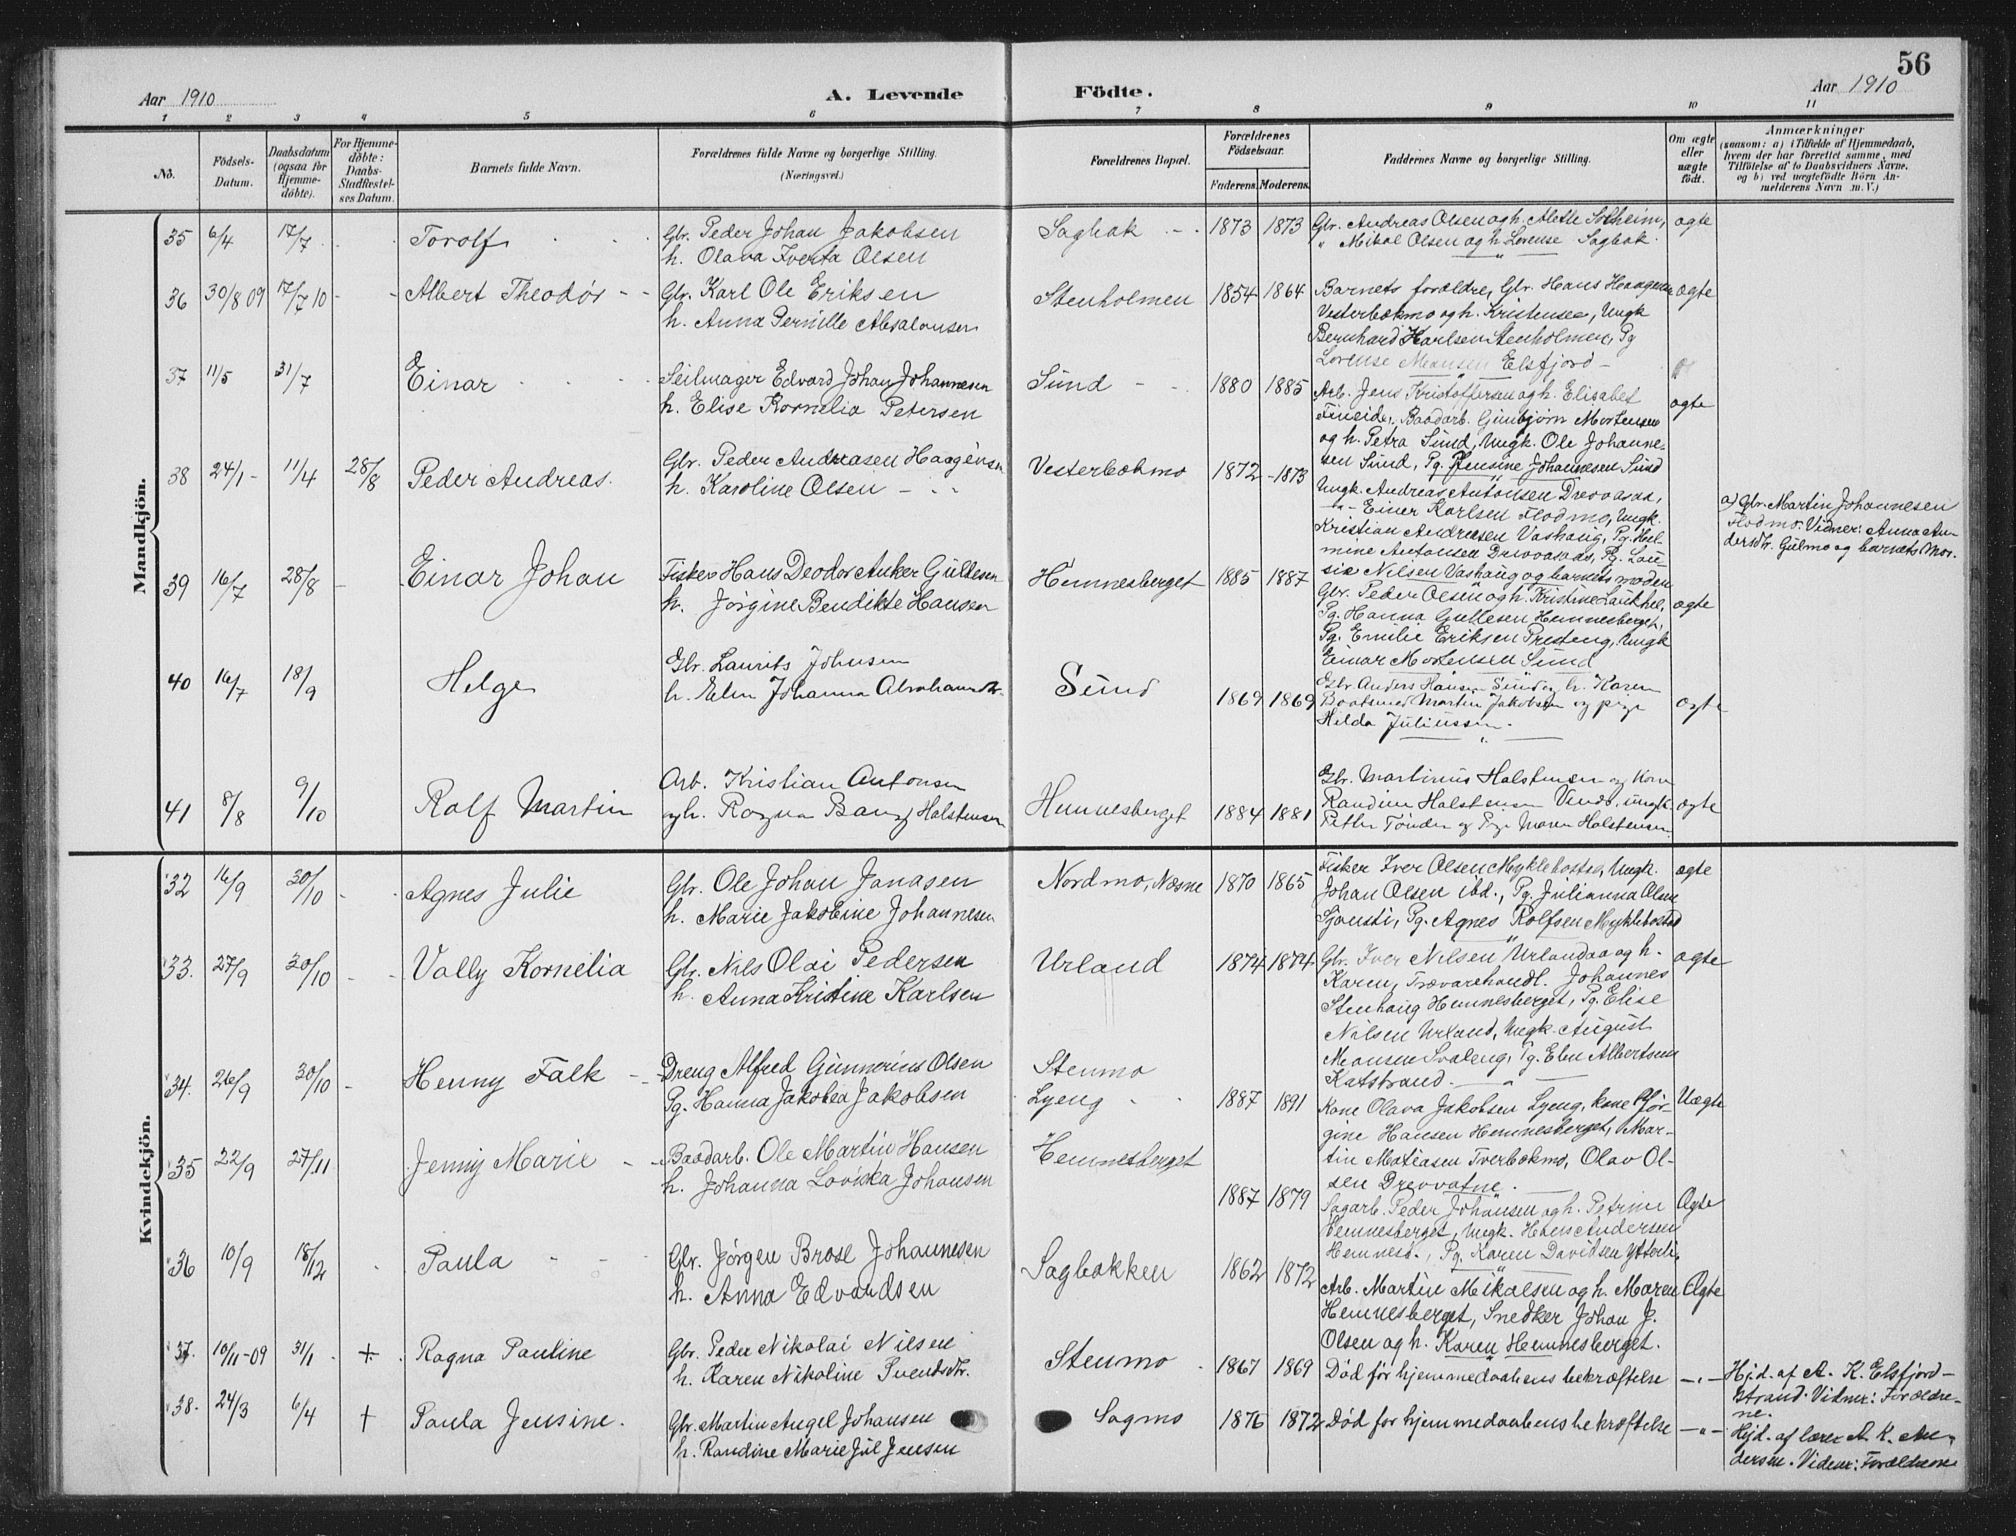 56
Aar 1910
A. Levende
Födte.
Aar 1910
1 2 3 4 5 6 7 8 9 10 11
No.
Födsels-Datum.
Daabsdatum (ogsaa for Hjemme-döbte).
For Hjemme-döbte: Daabs-Stadfæstel-ses Datum.
Barnets fulde Navn.
Forældrenes fulde Navne og borgerlige Stilling.
(Næringsvei.)
Forældrenes Bopæl.
Forældrenes Födselsaar.
Faderens. Moderens.
Faddernes Navne og borgerlige Stilling.
Om ægte eller uægte födt.
Anmærkninger
(saasom: a) i Tilfælde af Hjemmedaab,
hvem der har forrettet samme, med
Tilföielse af to Daabsvidners Navne,
og b) ved uægtefödte Börn An-
melderens Navn m. V.)
Mandkjön.
35 6/4 17/7 Torolf
Gbr. Peder Johan Jakobsen
h. Olava Iverta Olsen
Sagbak 1873 1873
Gbr. Andreas Olsen og h. Alette Solheim,
" Mikal Olsen og h. Lorense Sagbak.
ægte
36 30/8 09 17/7 10 Albert Theodór
Gbr. Karl Ole Eriksen
h. Anna Pernille Absalonsen
Stenholmen 1854 1864
Barnets forældre, Gbr. Hans Haagensen
Vesterbækmo og h. Kristense, Ungk
Bernhard Karlsen Stenholmen, Pg
Lorense Monsen Elsfjord
ægte
37 11/5 31/7 Einar
Seilmager Edvard Johan Johannesen
h. Elise Kornelia Petersen
Sund 1880 1885
Arb. Jens Kristoffersen og h. Elisabet
Fineide, Baadarb. Gunbjørn Mortensen
og h. Petra Sund, Ungk. Ole Johanne-
sen Sund, Pg. Jensine Johannesen Sund
ægte
38 24/1 11/4 28/8 Peder Andreas.
Gbr. Peder Andreasen Haagensen
h. Karoline Olsen
Vesterbækmo 1872 1873
Ungk. Andreas Antonsen Drevvasaa,
Einer Karlsen Flodmo, Ungk.
Kristian Andresen Vashaug, Pg. Hel-
mine Antonsen Drevvasaa, Pg. Lou-
sie Nilsen Vashaug og barnets moder
a) Gbr. Martin Johannesen
Flodmo. Vidner: Anna An-
dersdtr. Gulmo og barnets Mor.
39 16/7 28/8 Einar Johan
Fisker Hans Deodor Anker Gullesen
h. Jørgine Bendikte Hansen
Hemnesberget 1885 1887
Gbr. Peder Olsen og h. Kristine Laukhel,
Pg. Hanna Gullesen Hemnesberget,
Pg. Emilie Eriksen Presteng, Ungk
Einar Mortensen Sund
ægte
40 16/7 18/9 Helge
Gbr. Laurits Johnsen
h. Elen Johanna Abrahamsdtr.
Sund 1869 1869
Gbr. Anders Hansen Sund og h. Karen
Baatsmed Martin Jakobsen og pige
Hilda Juliussen.
ægte
41 8/8 9/10 Rolf Martin
Arb. Kristian Antonsen
og h. Ragna Bang Halstensen
Hemnesberget 1884 1881
Gbr. Martinus Halstensen og Kone
Randine Halstensen, ungk.
Petter Tönder og Pge Maren Halstensen.
ægte
Kvindekjön.
32 16/9 30/10 Agnes Julie
Gbr. Ole Johan Jonasen
h. Marie Jakobine Johannesen
Nordmo, Næsne 1870 1865
Fisker Iver Olsen Myklebostad, Ungk.
Johan Olsen ibd., Pg. Julianna Olsen
Sjaansti, Pg. Agnes Rolfsen Myklebostad
ægte
33. 27/9 30/10 Vally Kornelia
Gbr. Nils Olai Pedersen
h. Anna Kristine Karlsen
Urland 1874 1874
Gbr. Iver Nilsen Urlandaa og h.
Karen, Trævarehandl. Johannes
Stenhaug Hemnesberget, Pg. Elise
Nilsen Urland, Ungk. August
Monsen Svaleng, Pg. Elen Albertsen
Katstrand.
ægte
34. 26/9 30/10 Henny Falk
Dreng Alfred Gunnerius Olsen
Pg. Hanna Jakobea Jakobsen
Stenmo
Lyeng 1887 1891
Kone Olava Jakobsen Lyeng, kone Jør-
gine Hansen Hemnesberget, Mar-
tin Matiasen Tverbækmo, Olav Ol-
sen Drevvatne.
Uægte
35 22/9 27/11 Jenny Marie
Baadarb. Ole Martin Hansen
h. Johanna Lovisa Johansen
Hemnesberget 1887 1879
Sagarb. Peder Johansen og h. Petrine
Hemnesberget, Ungk. Hans Andersen
Hemnesb., Pg. Karen Davidsen Ytterli.
Ægte
36 10/9 18/12 Paula
Gbr. Jørgen Brose Johannesen
h. Anna Edvardsen
Sagbakken 1862 1872
Arb. Martin Mikalsen og h. Maren
Hemnesberget, Snedker Johan J.
Olsen og h. Karen Hemnesberget.
Ægte
37. 10/11-09 31/1 + Ragna Pauline
Gbr. Peder Nikolai Nilsen
h. Karen Nikoline Svendsdtr.
Stenmo 1867 1869
Død før hjemmedaabens bekræftelse
—"—
Hjd. af A. K. Elsfjord-
strand. Vidner: Forældre-
ne.
38. 24/3 6/4 + Paula Jensine.
Gbr. Martin Angel Johansen
h. Randine Marie Jul Jensen
Sagmo 1876 1872
Død før hjemmedaabens bekræftelse
—"—
Hjd. af lærer A. K. An-
dersen. Vidner: Forældrene